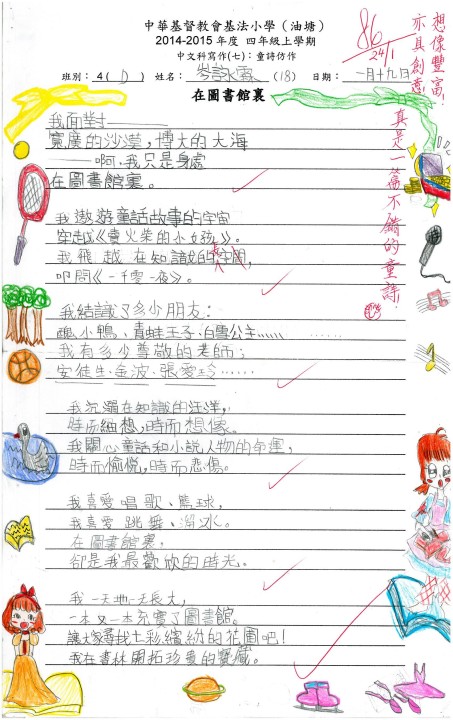 中華基督教會基法小學（油塘）
2014-2015 年度 四年級上學期
中文科寫作(七)：童詩仿作
班別：4( D ) 姓名：岑詠霖(18) 日期：一月十九日
86
24/1
想像豐富，
亦具創意！
真是一篇不錯的童詩！
在圖書館裏
我面對———
寬廣的沙漠，博大的大海
——啊，我只是身處
在圖書館裏。
我遨遊童話故事的宇宙
穿越《賣火柴的小女孩》。
我飛越在知識的空間，
叩問《一千零一夜》。
我結識了多少朋友：
醜小鴨、青蛙王子、白雪公主…… ……
我有多少尊敬的老師：
安徒生、金波、張愛玲……
我沉溺在知識的汪洋，
時而細想，時而想像。
我關心童話和小說人物的命運，
時而愉悅，時而悲傷。
我喜愛唱歌、籃球，
我喜愛跳舞、溜冰。
在圖書館裏，
卻是我最歡欣的時光。
我一天地一天長大，
一本又一本充實了圖書館。
讓大家尋找七彩繽紛的花圃吧！
我在書林開拓珍貴的寶藏。